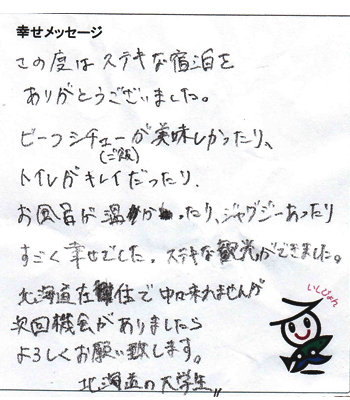 幸せメッセージ
この度はステキな宿泊を
ありがとうございました。
ビーフシチューが美味しかったり、
(ご飯)
トイレがキレイだったり、
お風呂が温かったり、ジャグジーあったり
すごく幸せでした。ステキな観光ができました。
北海道在住で中々来れませんが
次回機会がありましたら
よろしくお願い致します。
北海道の大学生